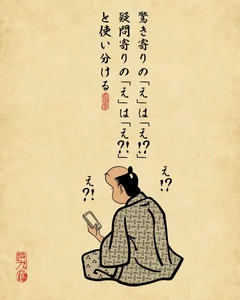 驚き寄りの「え」は「え!?」
疑問寄りの「え」は「え?!」
と使い分ける
え!?
え?!